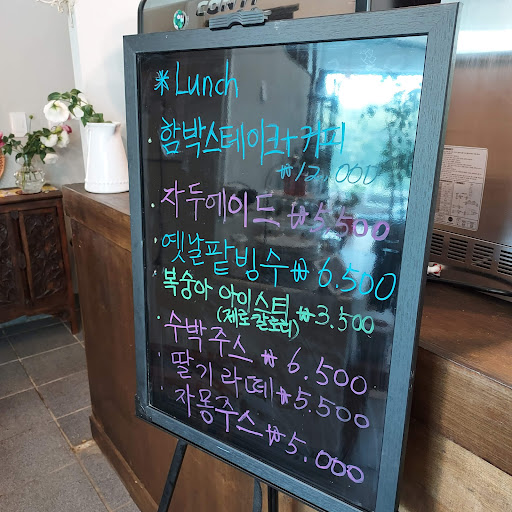 CONTI
※Lunch
· 함박스테이크+커피
₩12,000
· 자두에이드 ₩5,500
· 옛날팥빙수 ₩6.500
· 복숭아 아이스티 ₩3.500
(제로칼로리)
· 수박주스 ₩6.500
· 딸기라떼 ₩5.500
· 자몽주스 ₩5,000